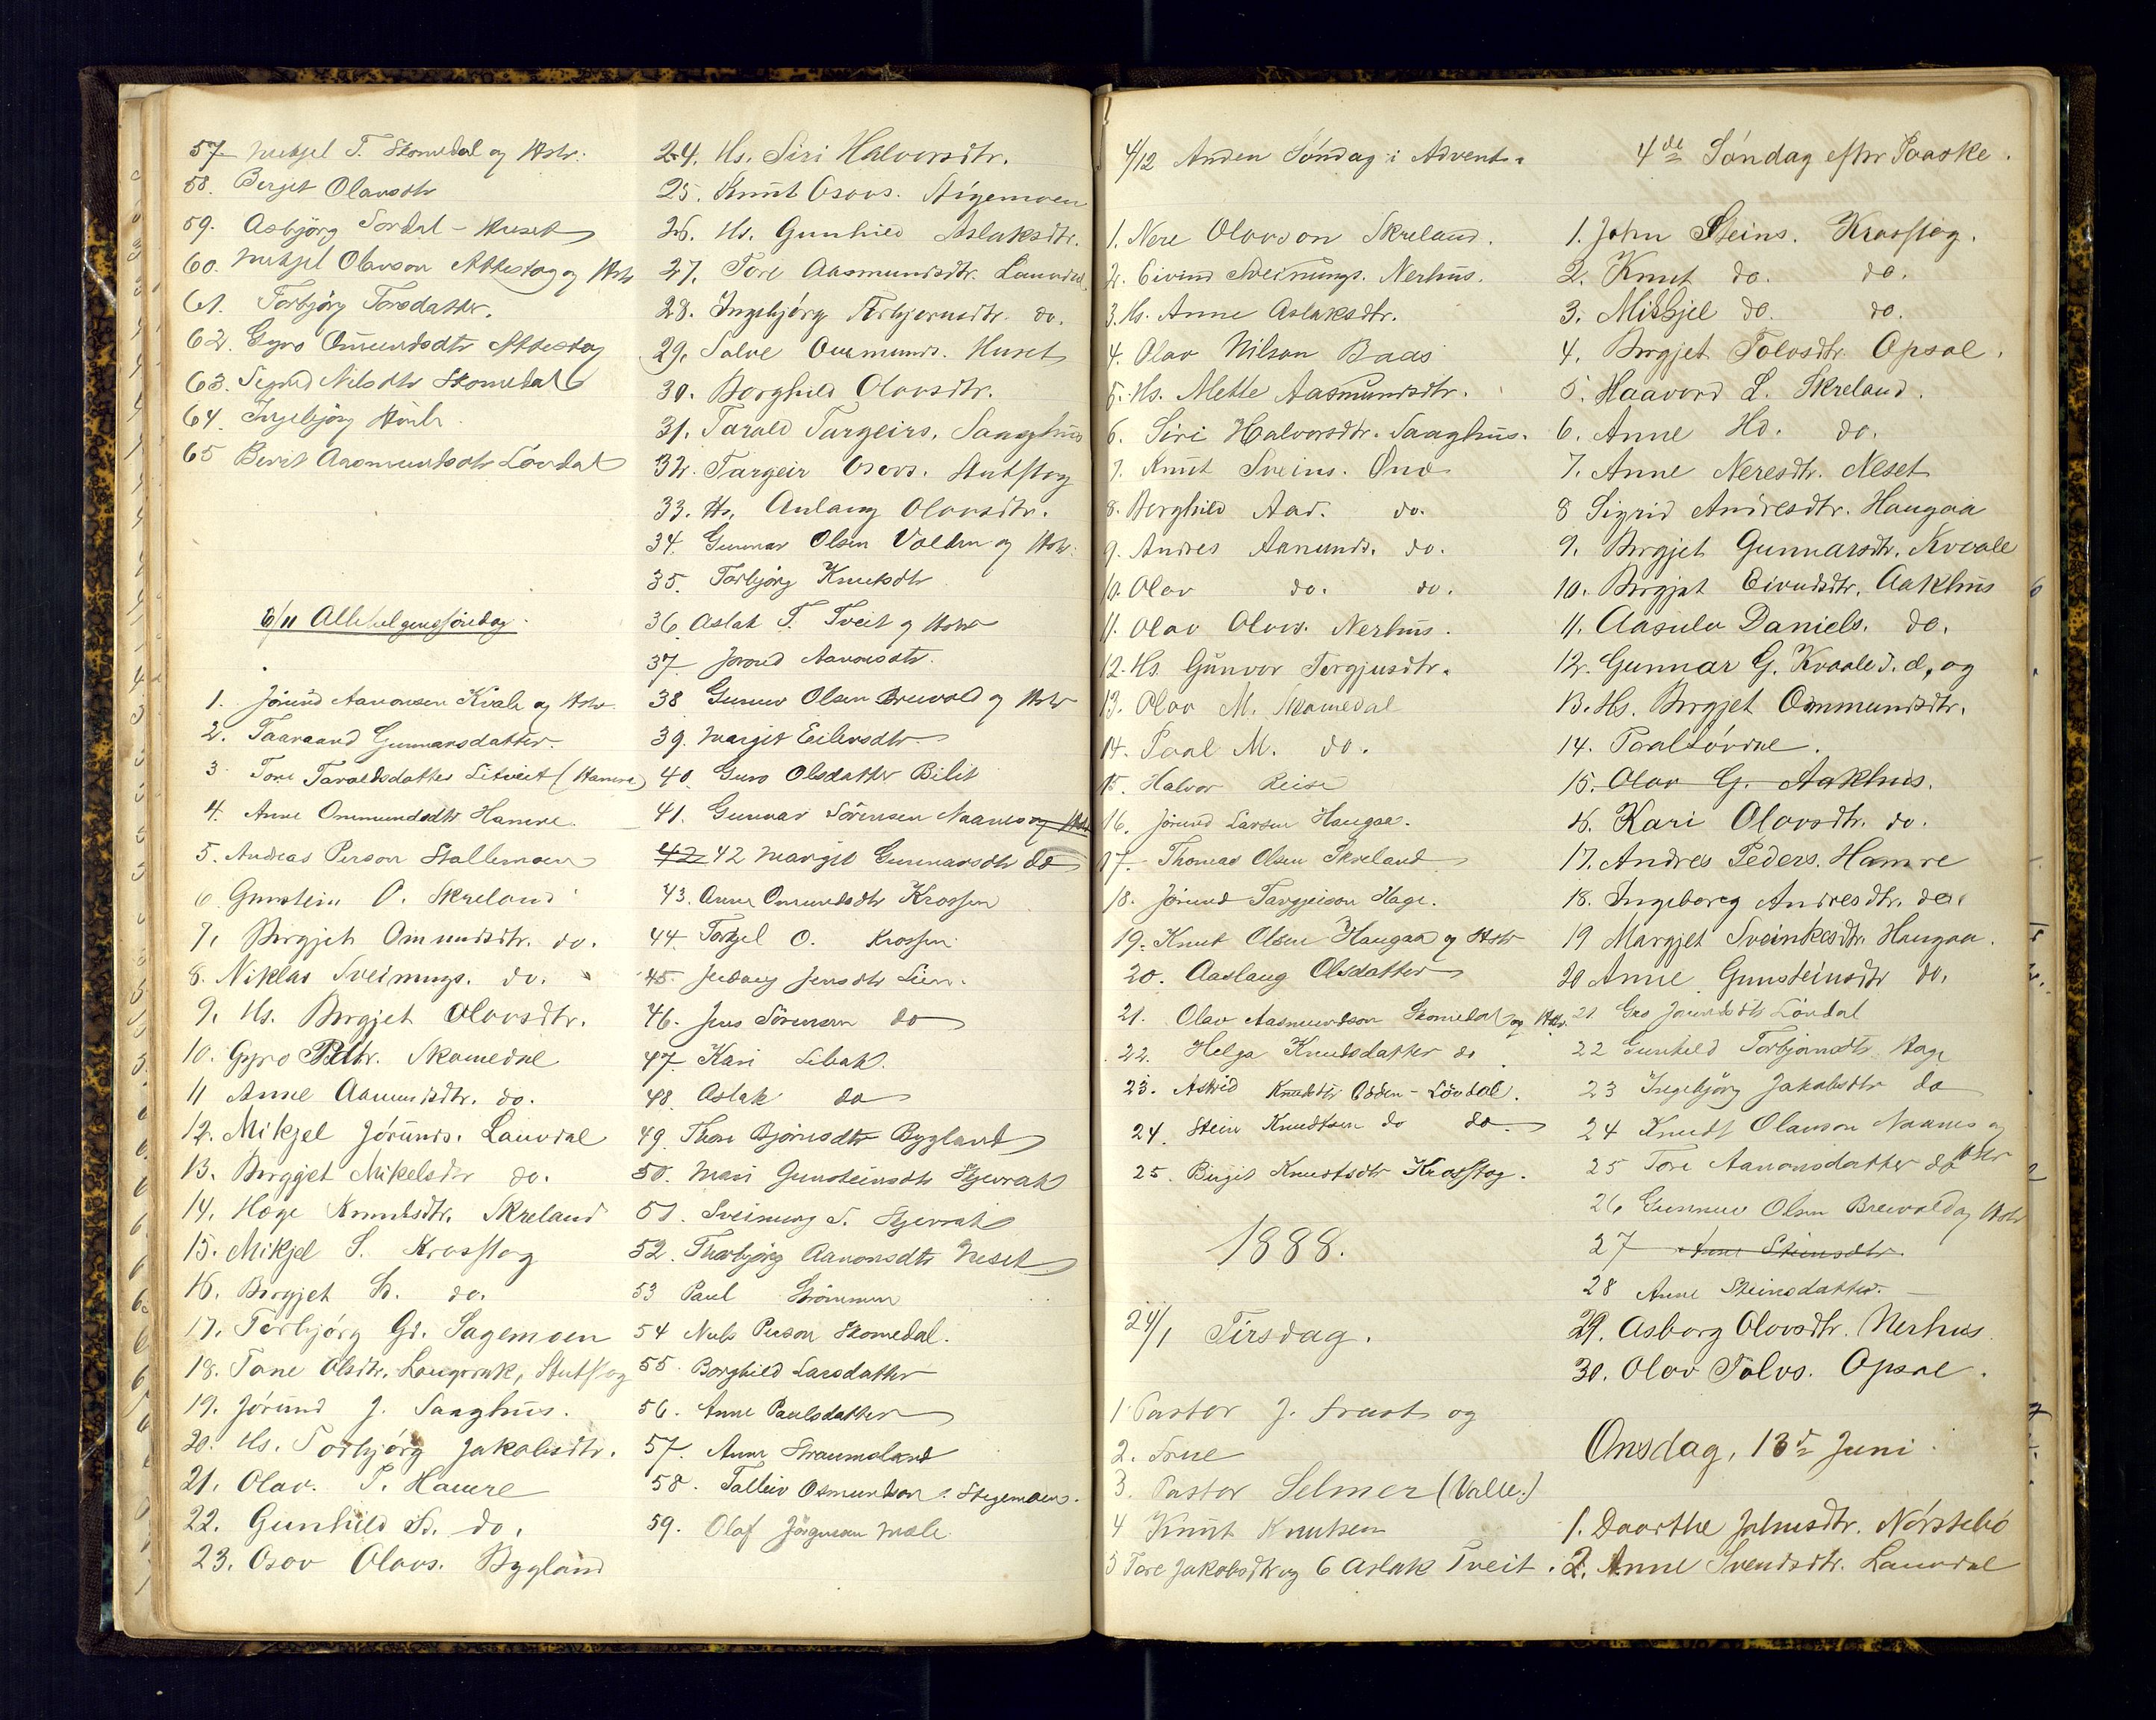 57 Mikjel T. Skomedal og Hstr.
58. Berget Olavsdtr
59. Asbjörg Tordal - Huset
60. Mikjel Olavson Attestog og Hstr
61. Torbjörg Torsdatter.
62. Gyro Omundsdtr Attestog
63. Sigrid Nilsdtr Skomedal
64. Ingebjörg
65 Berit Aasmundsdtr Lövdal
6/11 Allehelgensöndag.
1. Jörund Aanonsen Kvale og Hstr.
2. Taaraand Gunnarsdatter.
3 Tore Taraldsdatter Litveit (Hamre)
4. Anne Ommundsdtr Hamre.
5. Andreas Person Stallemoen
6 Gunstein O. Skreland
7. Borgjet Omundsdtr. do.
8. Niklas Sveinungs. do.
9. Hs. Borgjet Olovsdtr.
10. Gyro Pdtr. Skomedal
11 Anne Aanundsdtr. do.
12. Mikjel Jörunds. Lauvdal
13. Borgjet Mikelsdtr do.
14. Hæge Knutsdtr. Skreland
15. Mikjel S. Krosstog
16. Borgjet Sd. do.
17. Torbjörg Gd. Sagemoen
18. Tone Olsdtr. Langerak, Stutstog
19. Jörund J. Saaghus.
20. Hs. Torbjörg Jakobsdtr.
21. Olav. T. Hamre
22. Gunhild Sd. do.
23. Osov Olovs. Bygland
24. Hs. Siri Halvorsdtr.
25. Knut Osovs. Stigemoen
26. Hs. Gunhild Aslaksdtr.
27. Tore Aasmundsdtr. Lauvdal
28. Ingebjörg Torbjornsdtr. do.
29. Salve Ommunds. Huset
30. Borghild Olovsdtr.
31. Tarald Targeirs. Saaghus
32. Targeir Osovs. Stutstog
33. Hs. Aulaug Olovsdtr.
34. Gunnar Olsen Valden og Hstr.
35. Torbjörg Knutsdtr
36 Aslak T. Tveit og Hstr
37 Jorond Aanonsdtr.
38 Gunnuv Olsen Breivold og Hstr
39. Margit Eilevsdtr.
40. Guro Olsdatter Bilit
41. Gunnar Sörensen Naanes og Hstr
42 42 Margit Gunnarsdtr do
43. Anne Omundsdtr Krossen
44 Torkjel O. Krossen
45. Jensdtr Lien.
46. Jens Sörensen do
47 Kari Libak.
48 Aslak do
49. Thore Bjornsdtr Bygland
50. Mari Gunsteinsdtr Skjevrak
51. Sveinung S. Skjevrak
52. Thorbjörg Aanonsdtr Neset
53 Paul Strömmen
54 Nils Person Skomedal.
55. Borghild Larsdatter
56. Anne Paulsdatter
57. Anne Straumsland
58. Talleiv Osmundson. Stegemoen.
59. Olaf Jörgensen Mæle
4/12 Anden Söndag i Advent.
1. Nere Olovson Skreland.
2. Eivind Sveinungs. Nerhus.
3. Hs. Anne Aslaksdtr.
4. Olav Nilson Baas
5. Hs. Mette Aasmundsdtr.
6. Siri Halvorsdtr. Saaghus.
7. Knut Sveins. Ose
8. Borghild Aad. do.
9. Andres Aanunds. do.
10. Olav do. do.
11. Olav Olovs. Nerhus.
12. Hs. Gunvor Tergjusdtr.
13. Olav M. Skomedal
14. Paal M. do.
15. Halvor Reise
16. Jörund Larsen Haugaa.
17 Thomas Olsen Skreland
18. Jörund Targjeison Hage.
19. Knut Olsen Haugaa og Hstr
20. Aaslaug Olsdatter
21. Olav Aasmundson Skomedal og Hstr.
22. Helga Knudsdatter do
23. Astrid Knudsdtr Osden-Lövdal.
24. Stein Knudtsen do do
25. Birgit Knudtsdtr Krosstog.
1888.
24/1 Tirsdag.
1. Pastor J. Frust og
2. Frue
3. Pastor Selmer (Valle.)
4 Knut Knutsen
5 Tore Jakobsdtr og 6 Aslak Tveit.
4de Söndag efter Paaske.
1. John Steins. Krosstog.
2. Knut do. do.
3. Mikjel do. do.
4. Borgjet Tolvsdtr. Opsal.
5. Haavord L. Skreland.
6. Anne Hd. do.
7. Anne Neresdtr. Neset
8 Sigrid Andresdtr. Haugaa
9. Borgjet Gunnarsdtr. Kvaale
10. Borgjet Eivindsdtr. Aakhus
11. Aasulv Daniels. do.
12. Gunnar G. Kvaale d. e. og
13. Hs. Borgjet Ommundsdtr.
14. Paal Lövdal.
15. Olav G. Aakhus.
16. Kari Olovsdtr. do.
17. Andres Peders. Hamre
18. Ingeborg Andresdtr. do.
19 Margjet Sveinkesdtr. Haugaa.
20 Anne Gunsteinsdtr do.
21. Gro Jorundsdtr Lövdal
22 Gunhild Torbjörnsdtr Hage
23 Ingebjörg Jakobsdtr do
24 Knudt Olavson Naanes og
25 Tore Aanonsdatter do Hstr
26 Gunnuv Olsen Breivold og Hstr
27 Anne Steinsdtr.
28 Anne Steinsdatter.
29. Asborg Olovsdtr. Nerhus.
30. Olov Tolvs. Opsal.
Onsdag, 13de Juni.
1. Daarthe Johnsdtr. Nörstebö
2. Anne Svendsdtr. Lauvdal